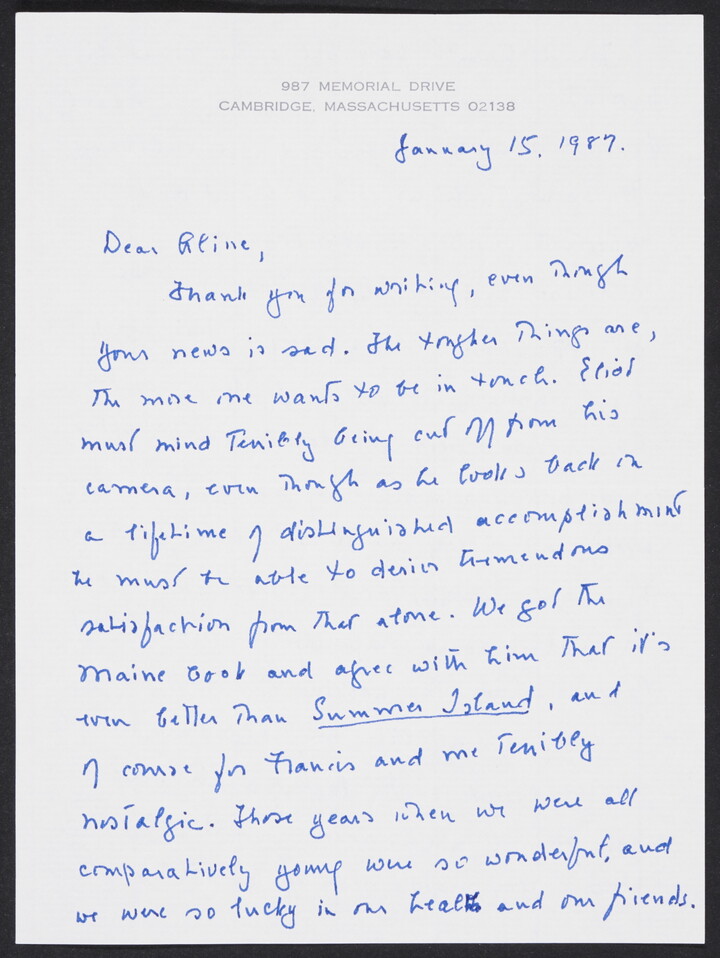 987 MEMORIAL DRIVE
CAMBRIDGE, MASSACHUSETTS 02138
January 15, 1987.
Dear Aline,
Thank you for writing, even though
your news is sad. The tougher things are,
the more one wants to be in touch. Eliot
must mind terribly being cut off from his
camera, even though as he looks back on
a lifetime of distinguished accomplishment
he must be able to derive tremendous
satisfaction from that alone. We got the
Maine book and agree with him that it's
even better than Summer Island, and
of course for Francis and me terribly
nostalgic. Those years when we were all
comparatively young were so wonderful, and
we were so lucky in our health and our friends.